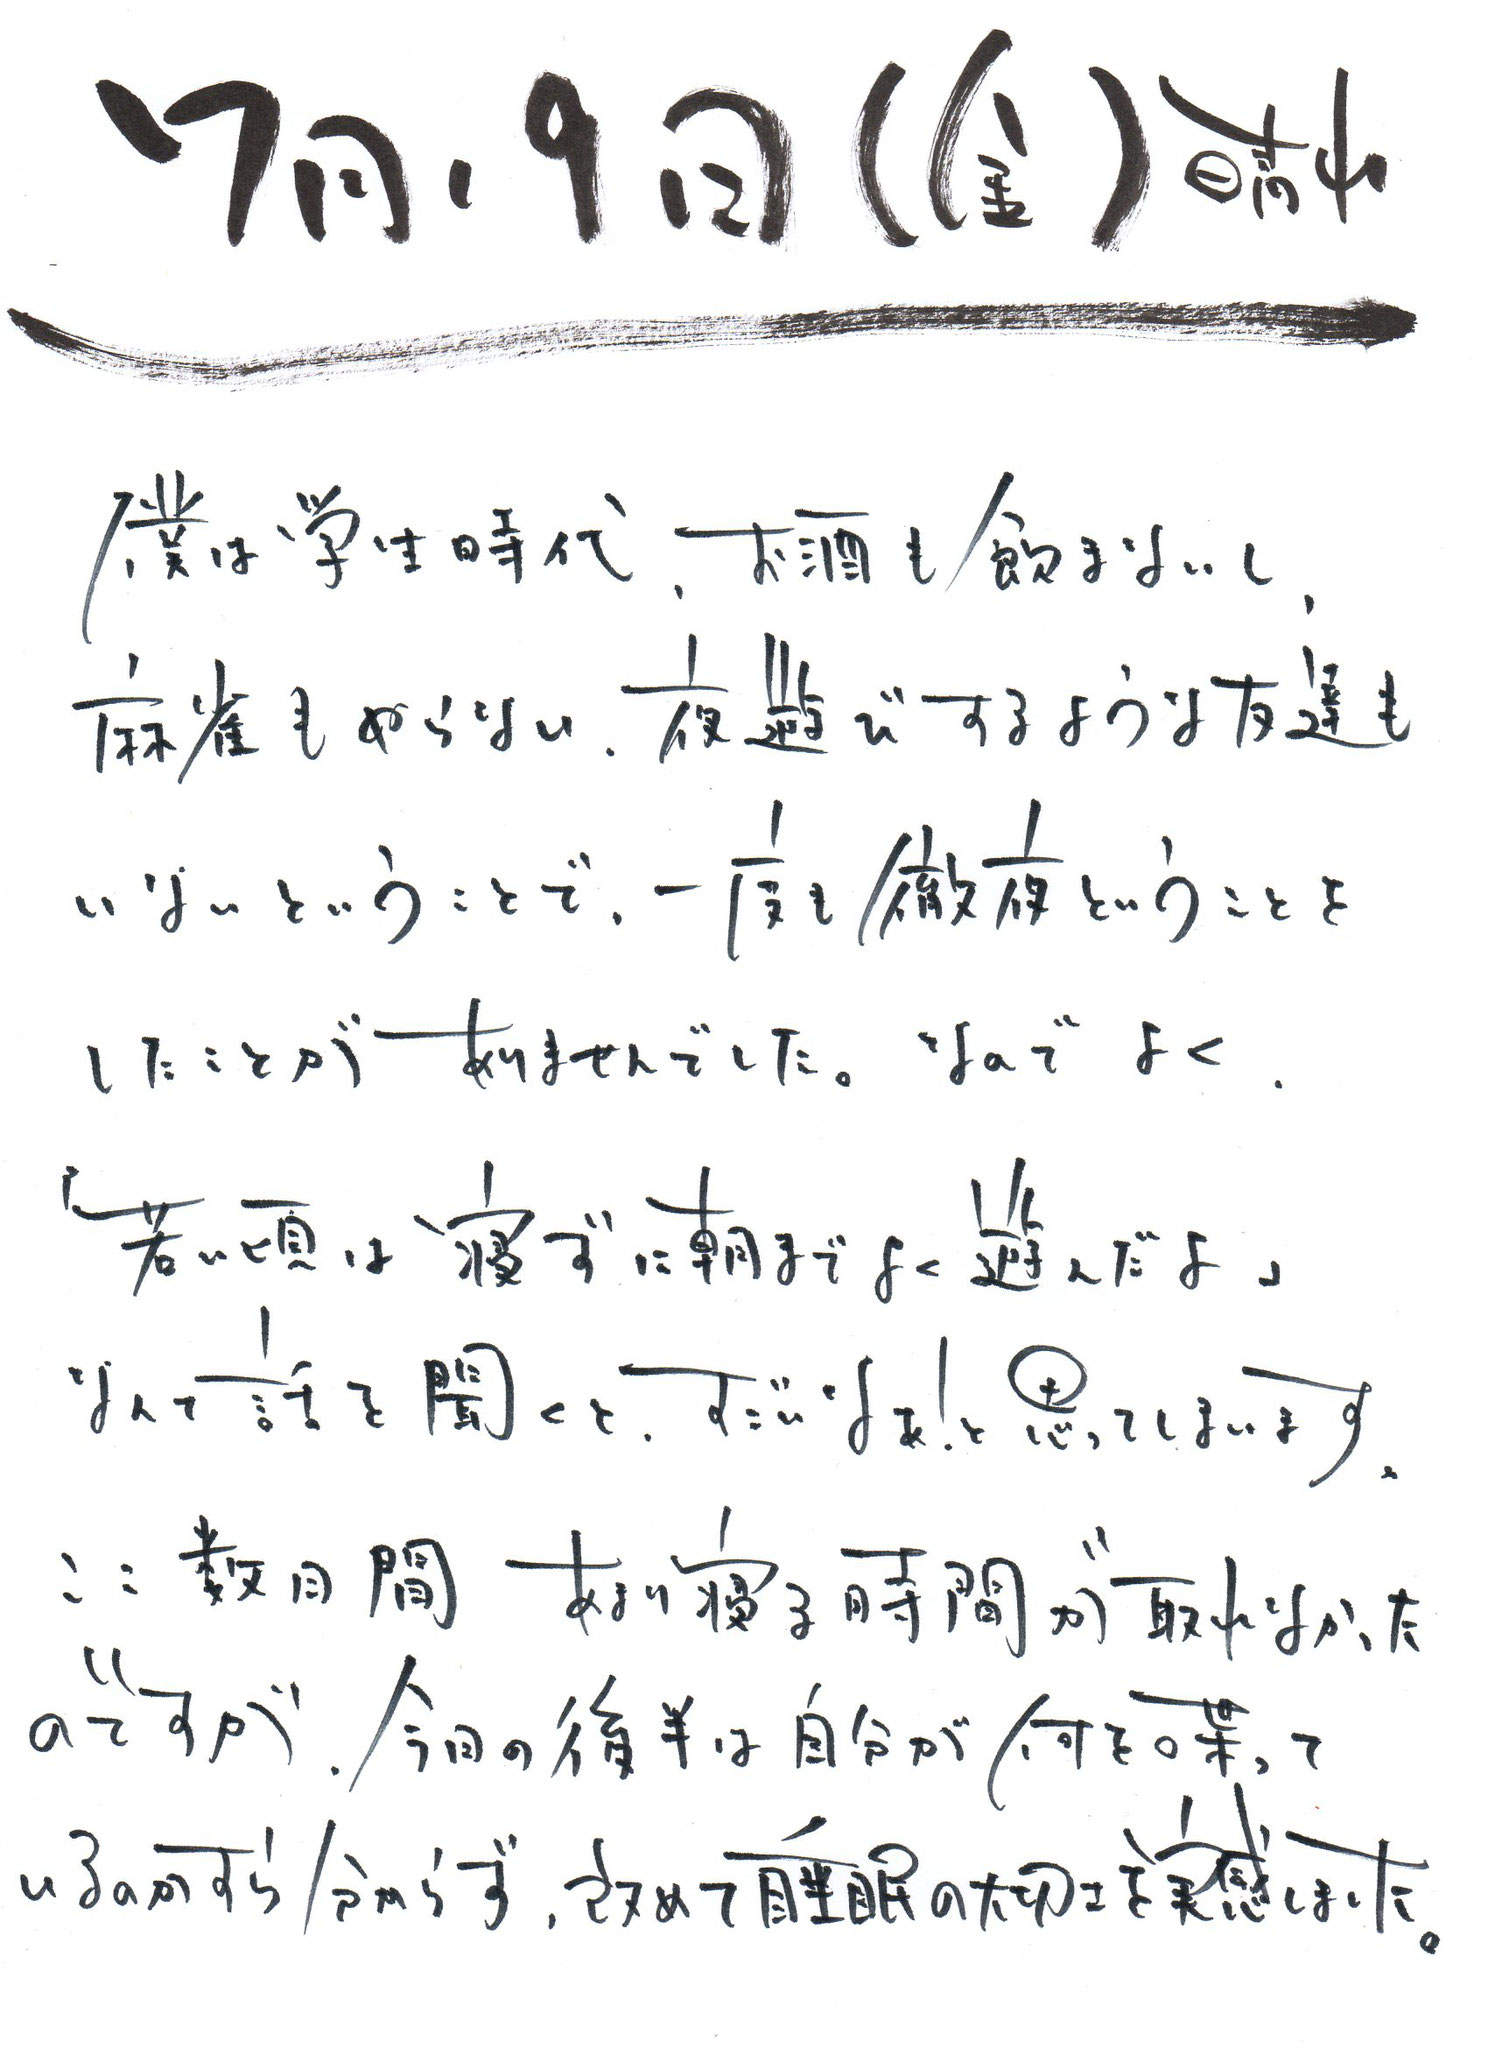 7月19日(金)晴れ
僕は学生時代、お酒も飲まないし、
麻雀もやらない、夜遊びするような友達も
いないということで、一度も徹夜ということを
したことがありませんでした。なので よく、
「若い頃は寝ずに朝までよく遊んだよ」
なんて話を聞くと、すごいなぁ!と思ってしまいます。
ここ数日間 あまり寝る時間が取れなかった
のですが、今日の後半は自分が何を喋って
いるのかすら分からず、改めて睡眠の大切さを実感しました。